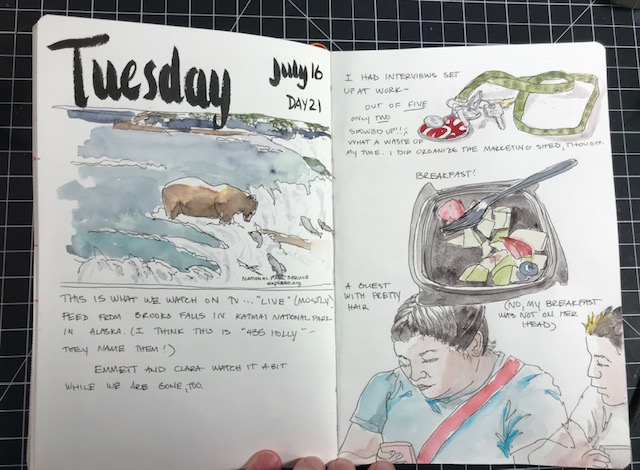 Tuesday
July 16
DAY 21
NATIONAL PARK SERVICE
explore.org
THIS IS WHAT WE WATCH ON TV... "LIVE" (MOSTLY)
FEED FROM BROOKS FALLS IN KATMAI NATIONAL PARK
IN ALASKA. (I THINK THIS IS "435 HOLLY" -
THEY NAME THEM!)
EMMETT AND CLARA WATCH IT A BIT
WHILE WE ARE GONE, TOO.
I HAD INTERVIEWS SET
UP AT WORK -
OUT OF FIVE
ONLY TWO
SHOWED UP!!
WHAT A WASTE OF
MY TIME. I DID ORGANIZE THE MARKETING SHED, THOUGH.
BREAKFAST!
A GUEST
WITH PRETTY
HAIR
(NO, MY BREAKFAST
WAS NOT ON HER
HEAD)